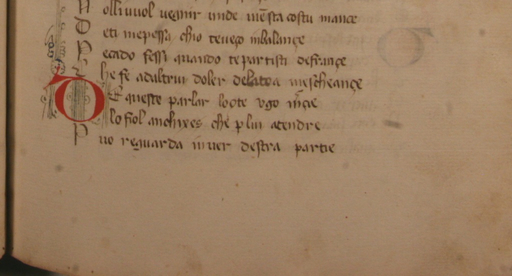 olli uuol uegnir unde uesta costu mance
eti mepessa chio tenego inbalançe
ecado fessi quando te partisti defrançe
he fe adultrui doler delatoa mescheançe
D E questo parlar loote ugo
lo fiol anchixes che plui atendre
P uo reguarda inuer destra partie